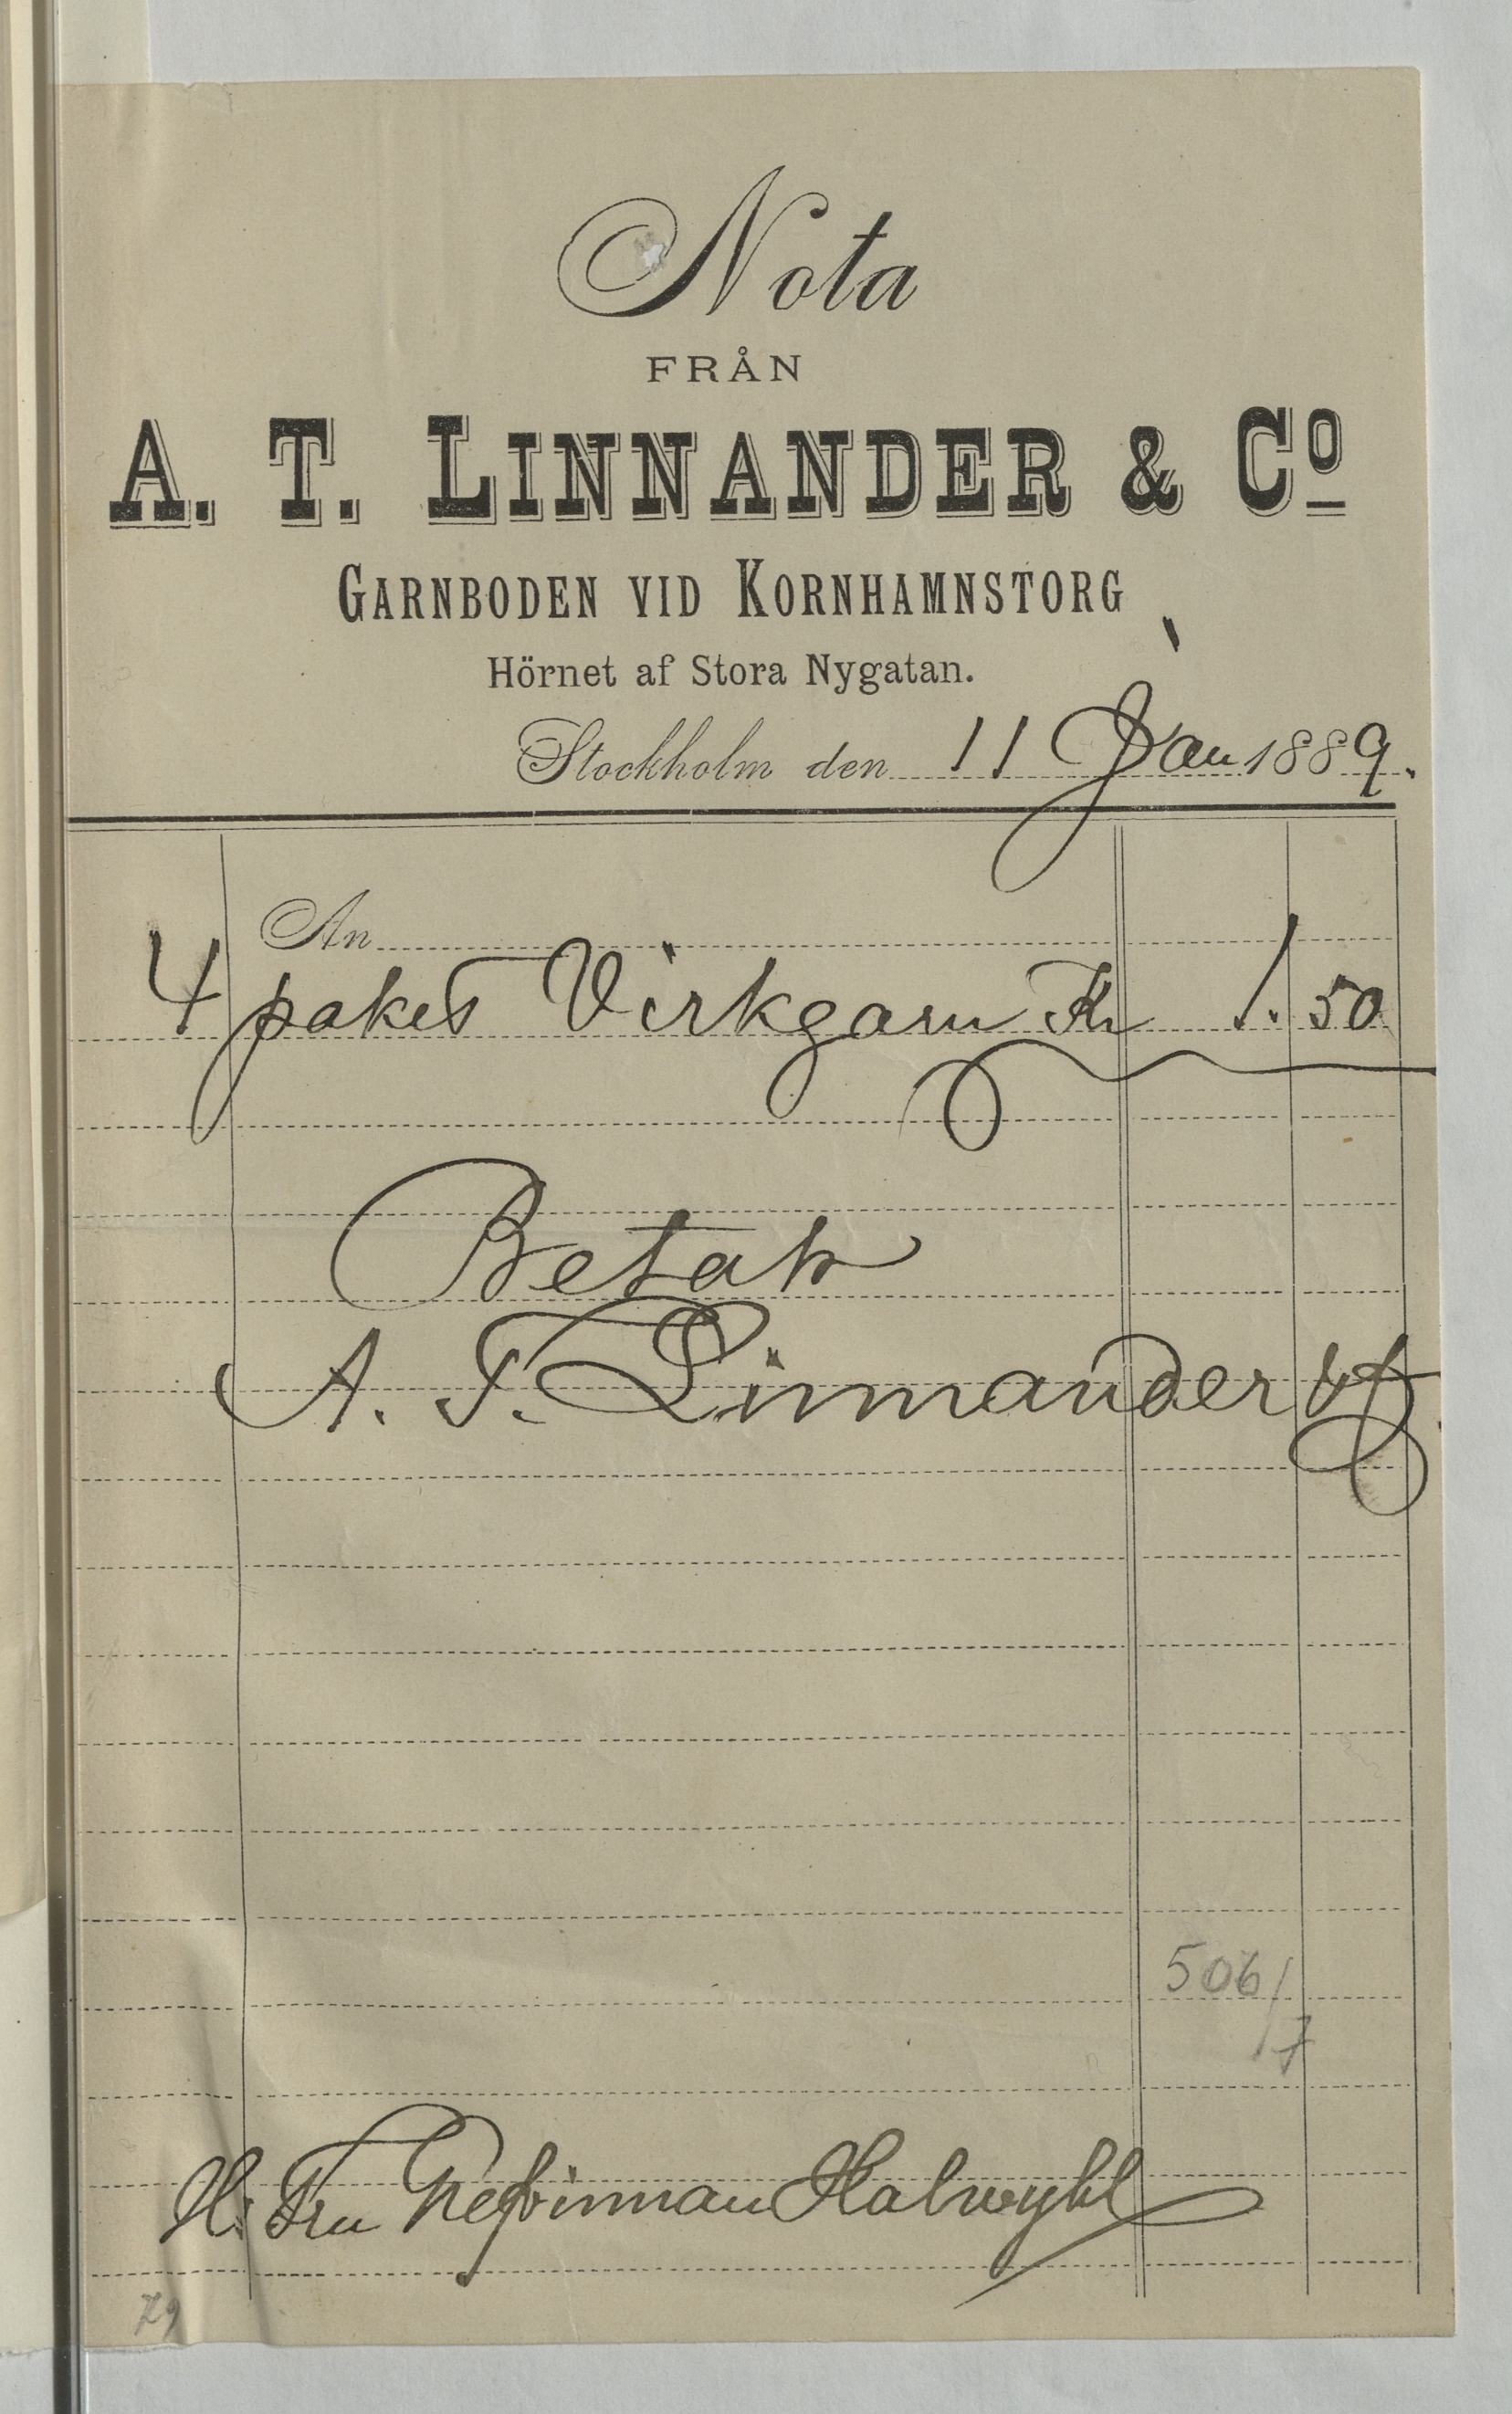 Nota
FRÅN
A. T. LINNANDER & Co
GARNBODEN VID KORNHAMNSTORG
Hörnet af Stora Nygatan.
Stockholm den 11 Jan 1889.
An
4 paket Virkgarn Kr 1. 50
Betalt
A. T. Linnander
506/7
H. Fru Grefvinnan Halwyhl
79